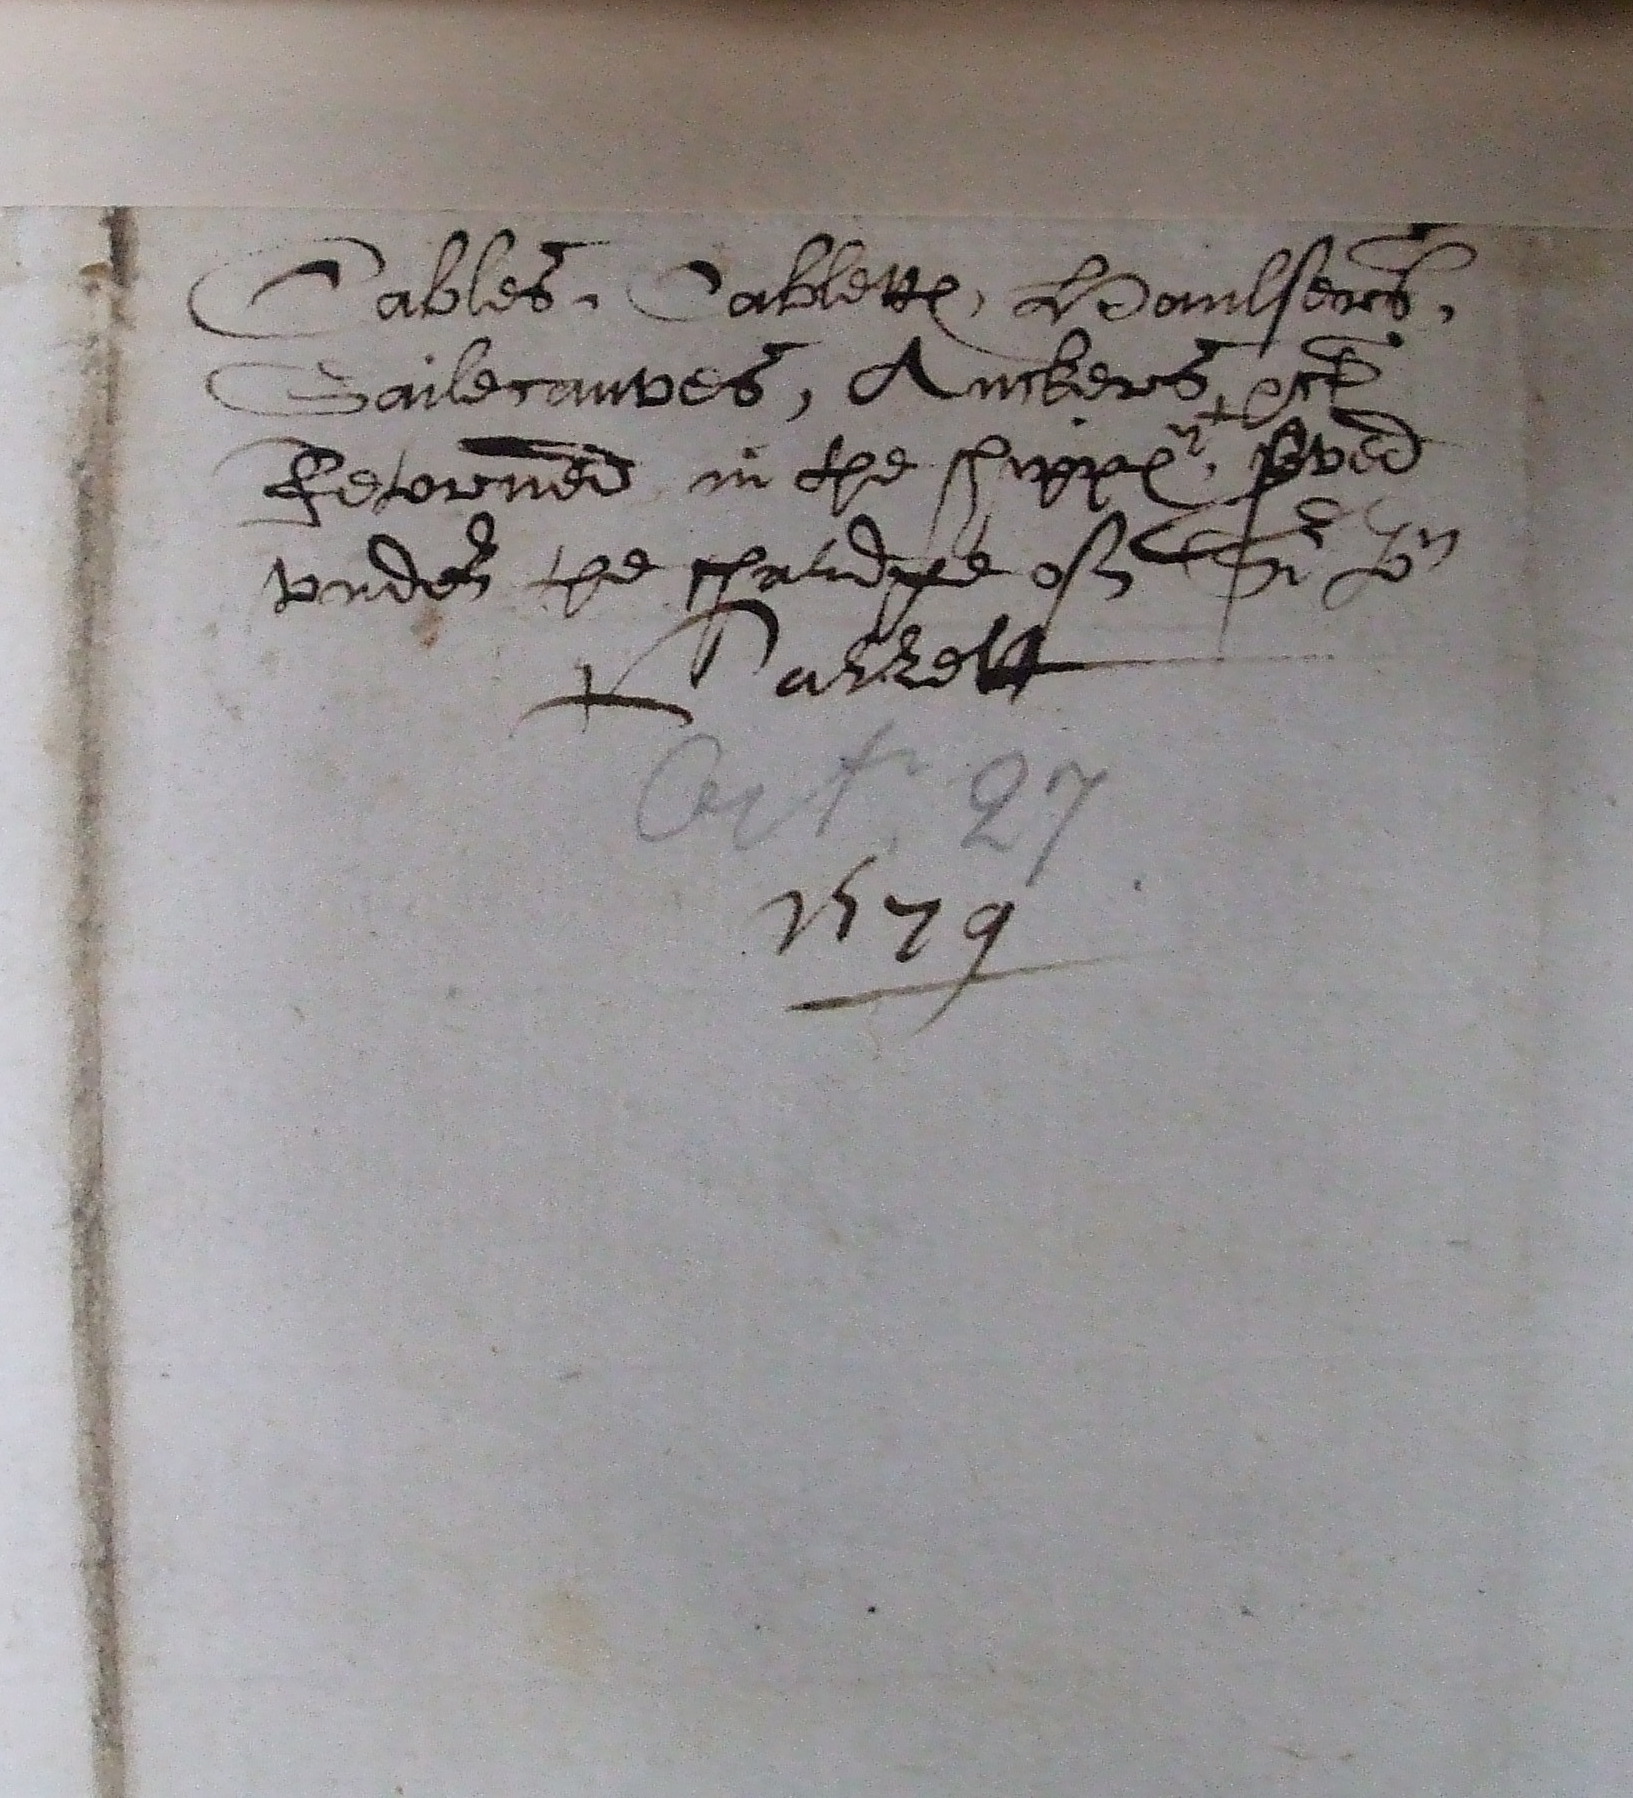 Cables, Cablette, Haulsers,
Sailecanves, Anckers, etc
Retorned in the shippes, served
vnder the chardge of Sr Jn
Parrott
Oct. 27
1579